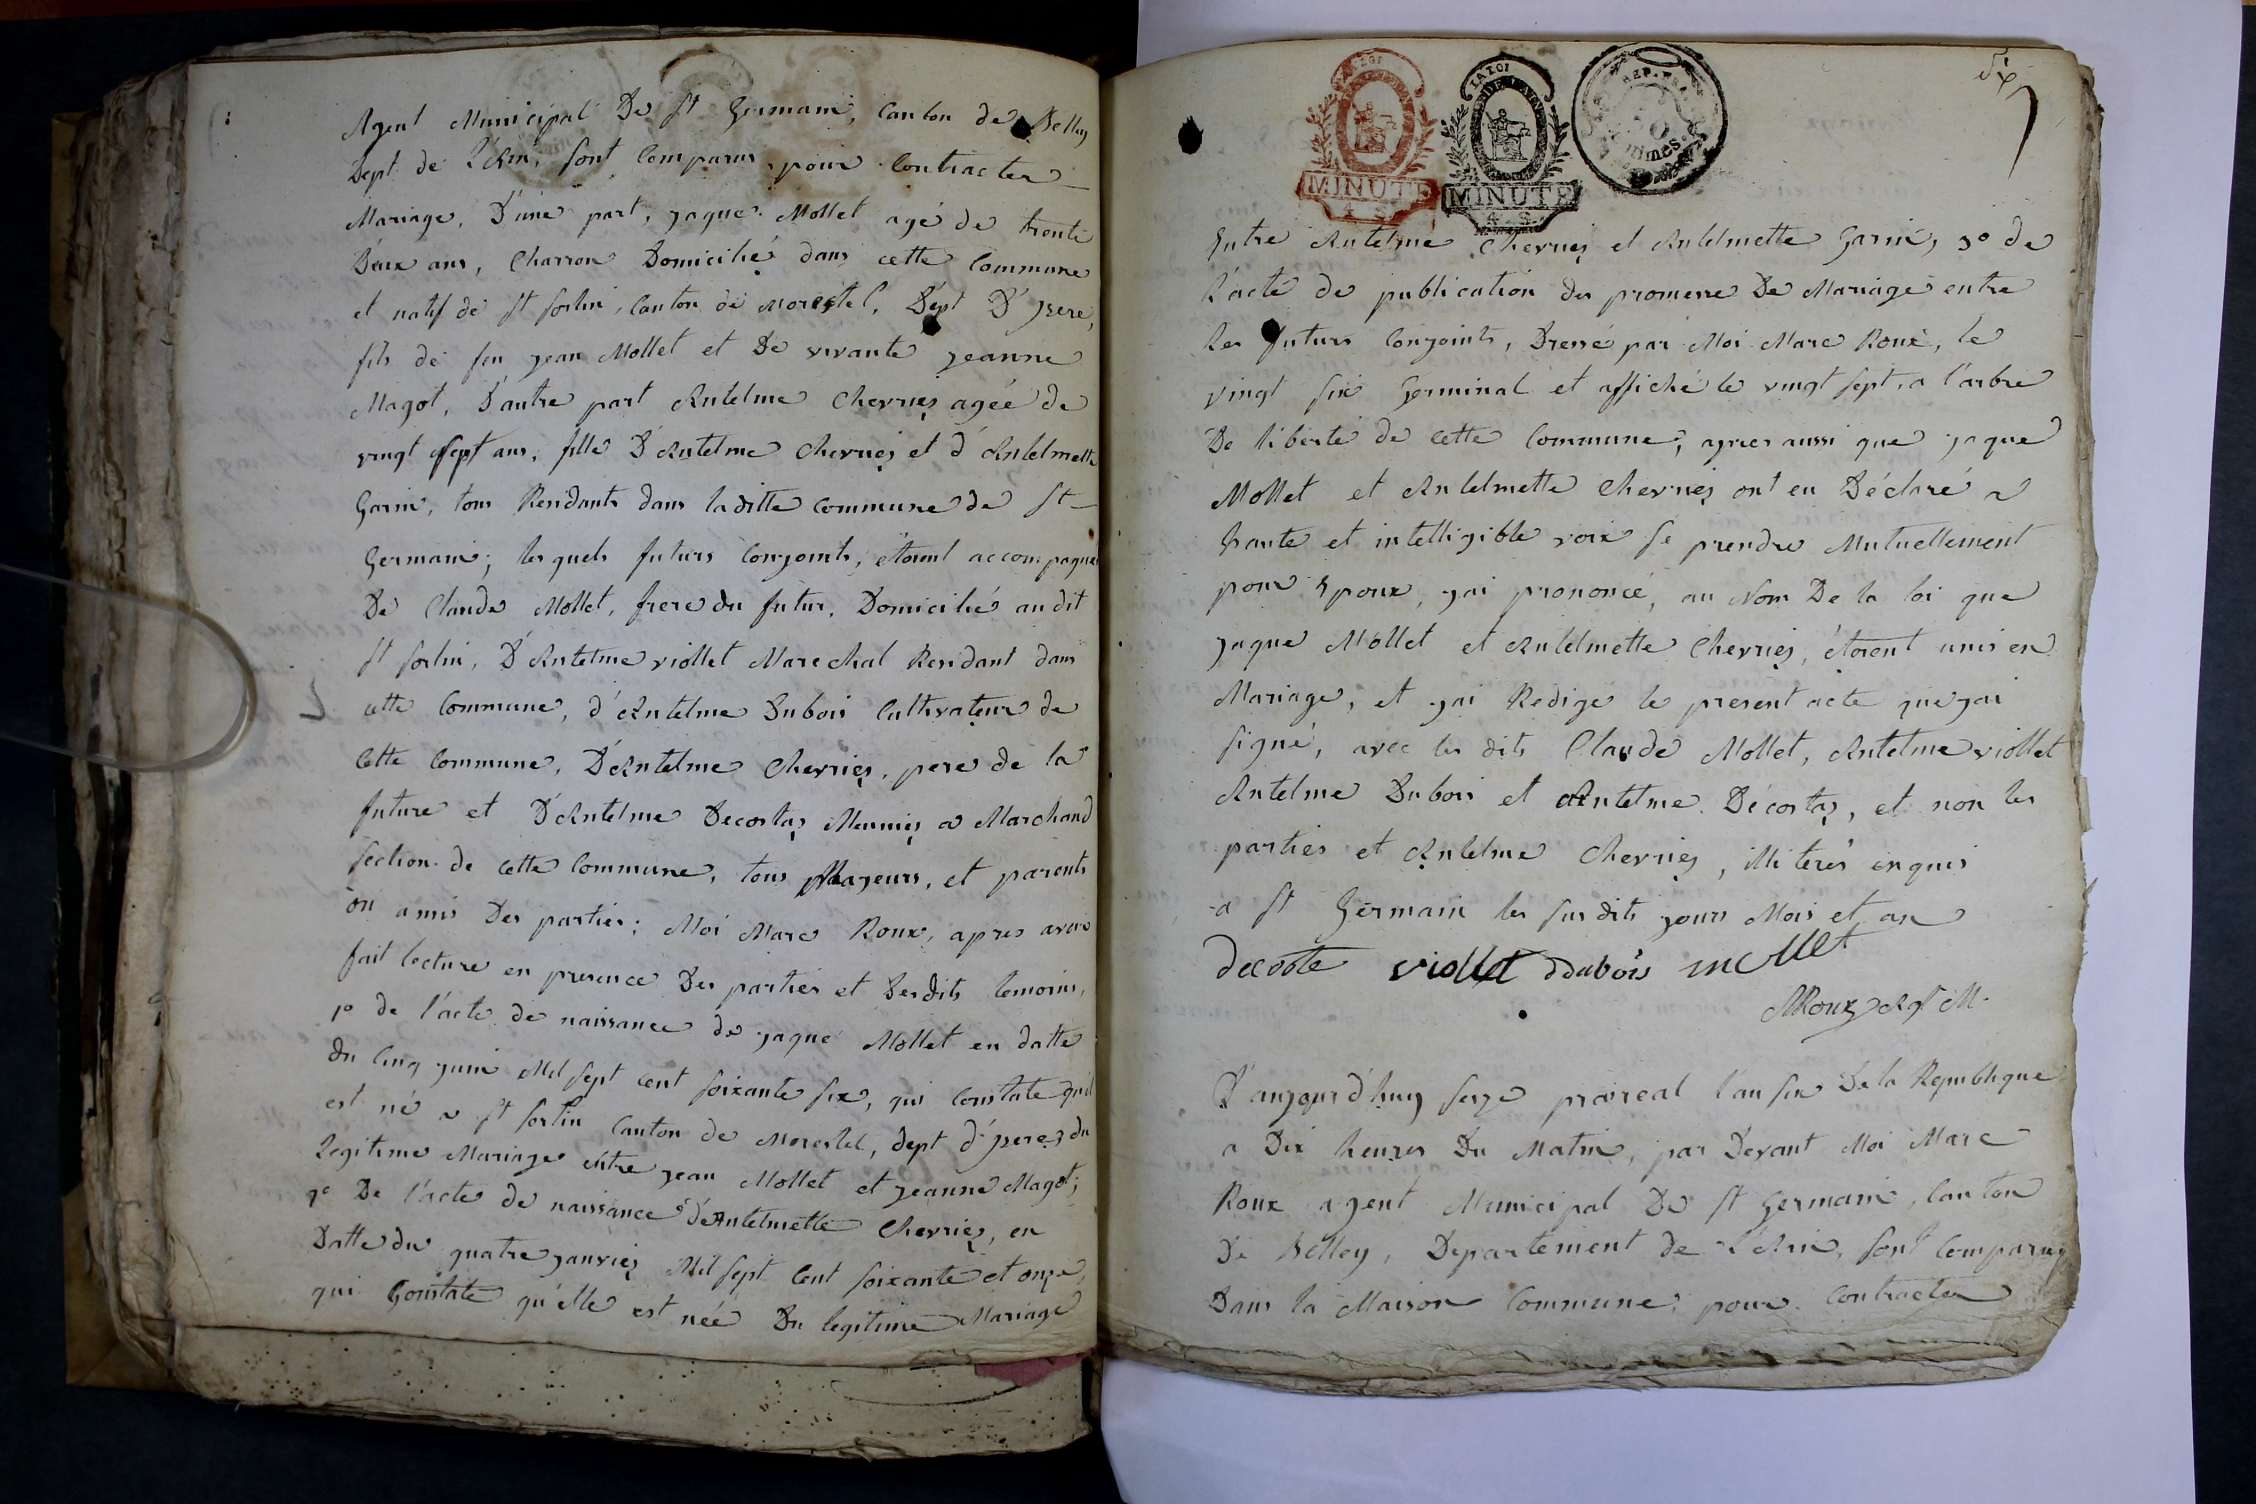 Agent Municipal De St Germain, Canton de Belley
Dept de L'Ain, sont Comparus pour Contracter
Mariage, D'une part, jaque Mollet agé de trente
Deux ans, Charron Domicilié dans cette Commune
et natif de St sorlin, Canton de Morestel, Dept D'jsere,
fils de feu jean Mollet et De vivante jeanne
Magot, D'autre part Antelme Cherviez agée de
vingt sept ans, fille D'Antelme Cherviez et d'Antelmette
Garin, tous Residants dans laditte Commune de St
Germain; les quels futurs Conjoints, étoient accompagnés
De Claude Mollet, frere du futur, Domicilié au dit
St sorlin, D'Antelme viollet Marechal Residant dans
cette Commune, d'Antelme Dubois Cultivateur de
Cette Commune, D'Antelme Cherviez, pere de la
future et D'Antelme Decostaz Meunier a Marchand
section de cette Commune, tous Mageurs, et parents
ou amis Des parties; Moi Marc Roux, apres avoir
fait lecture en presence Des parties et Desdits temoins,
1° de l'acte de naissance de jaque Mollet en datte
du Cinq juin Mil sept cent soixante six, qui Constate qu'il
est né a St sorlin Canton de Morestel, dept d'jsere, du
Legitime Mariage entre jean Mollet et jeanne Magot;
2° De l'acte de naissance d'Antelmette Cherviez, en
Datte du quatre janvier Mil sept Cent soixante et onze,
qui Constate qu'elle est née Du legitime Mariage
MINUTE
4 S
MINUTE
4 S
REP.
six
Entre Antelme Cherviez et Antelmette Garin, 3° de
L'acte de publication des promesse De Mariage entre
Les futurs Conjoints, Dressé par Moi Marc Roux, le
vingt six Germinal et affiché le vingt sept, a l'arbre
De liberté de cette Commune, apres aussi que jaque
Mollet et Antelmette Cherviez ont eu Déclaré a
haute et intelligible voix se prendre Mutuellement
pour Epoux, jai prononcé, au Nom De la loi que
jaque Mollet et Antelmette Cherviez, étoient unis en
Mariage, et jai Redigé le present acte que jai
signé, avec les dits Claude Mollet, Antelme viollet
Antelme Dubois et Antelme Décostaz, et non les
parties et Antelme Cherviez, illiterés enquis
a St Germain les susdits jours Mois et an
decoste viollet ddubois mollet
MRoux Agt M.
D'aujourd'huy seize prairéal l'an six De la Republique
a Dix heures Du Matin, par Devant Moi Marc
Roux agent Municipal De St Germain, Canton
De Belley, Departement de L'Ain, sont Comparus
Dans la Maison Commune, pour Contracter